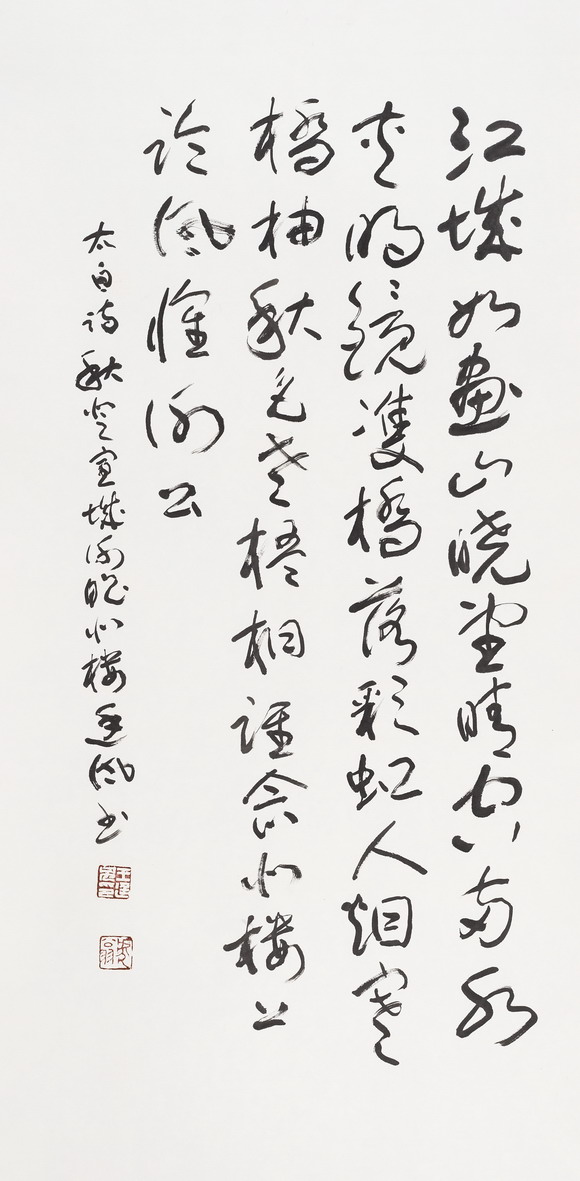 江城如畫山曉望晴空兩水
夾明鏡雙橋落彩虹人烟寒
橘柚秋色老梧桐誰念北樓上
臨風懷謝公
太白詩秋登宣城謝朓北樓風书